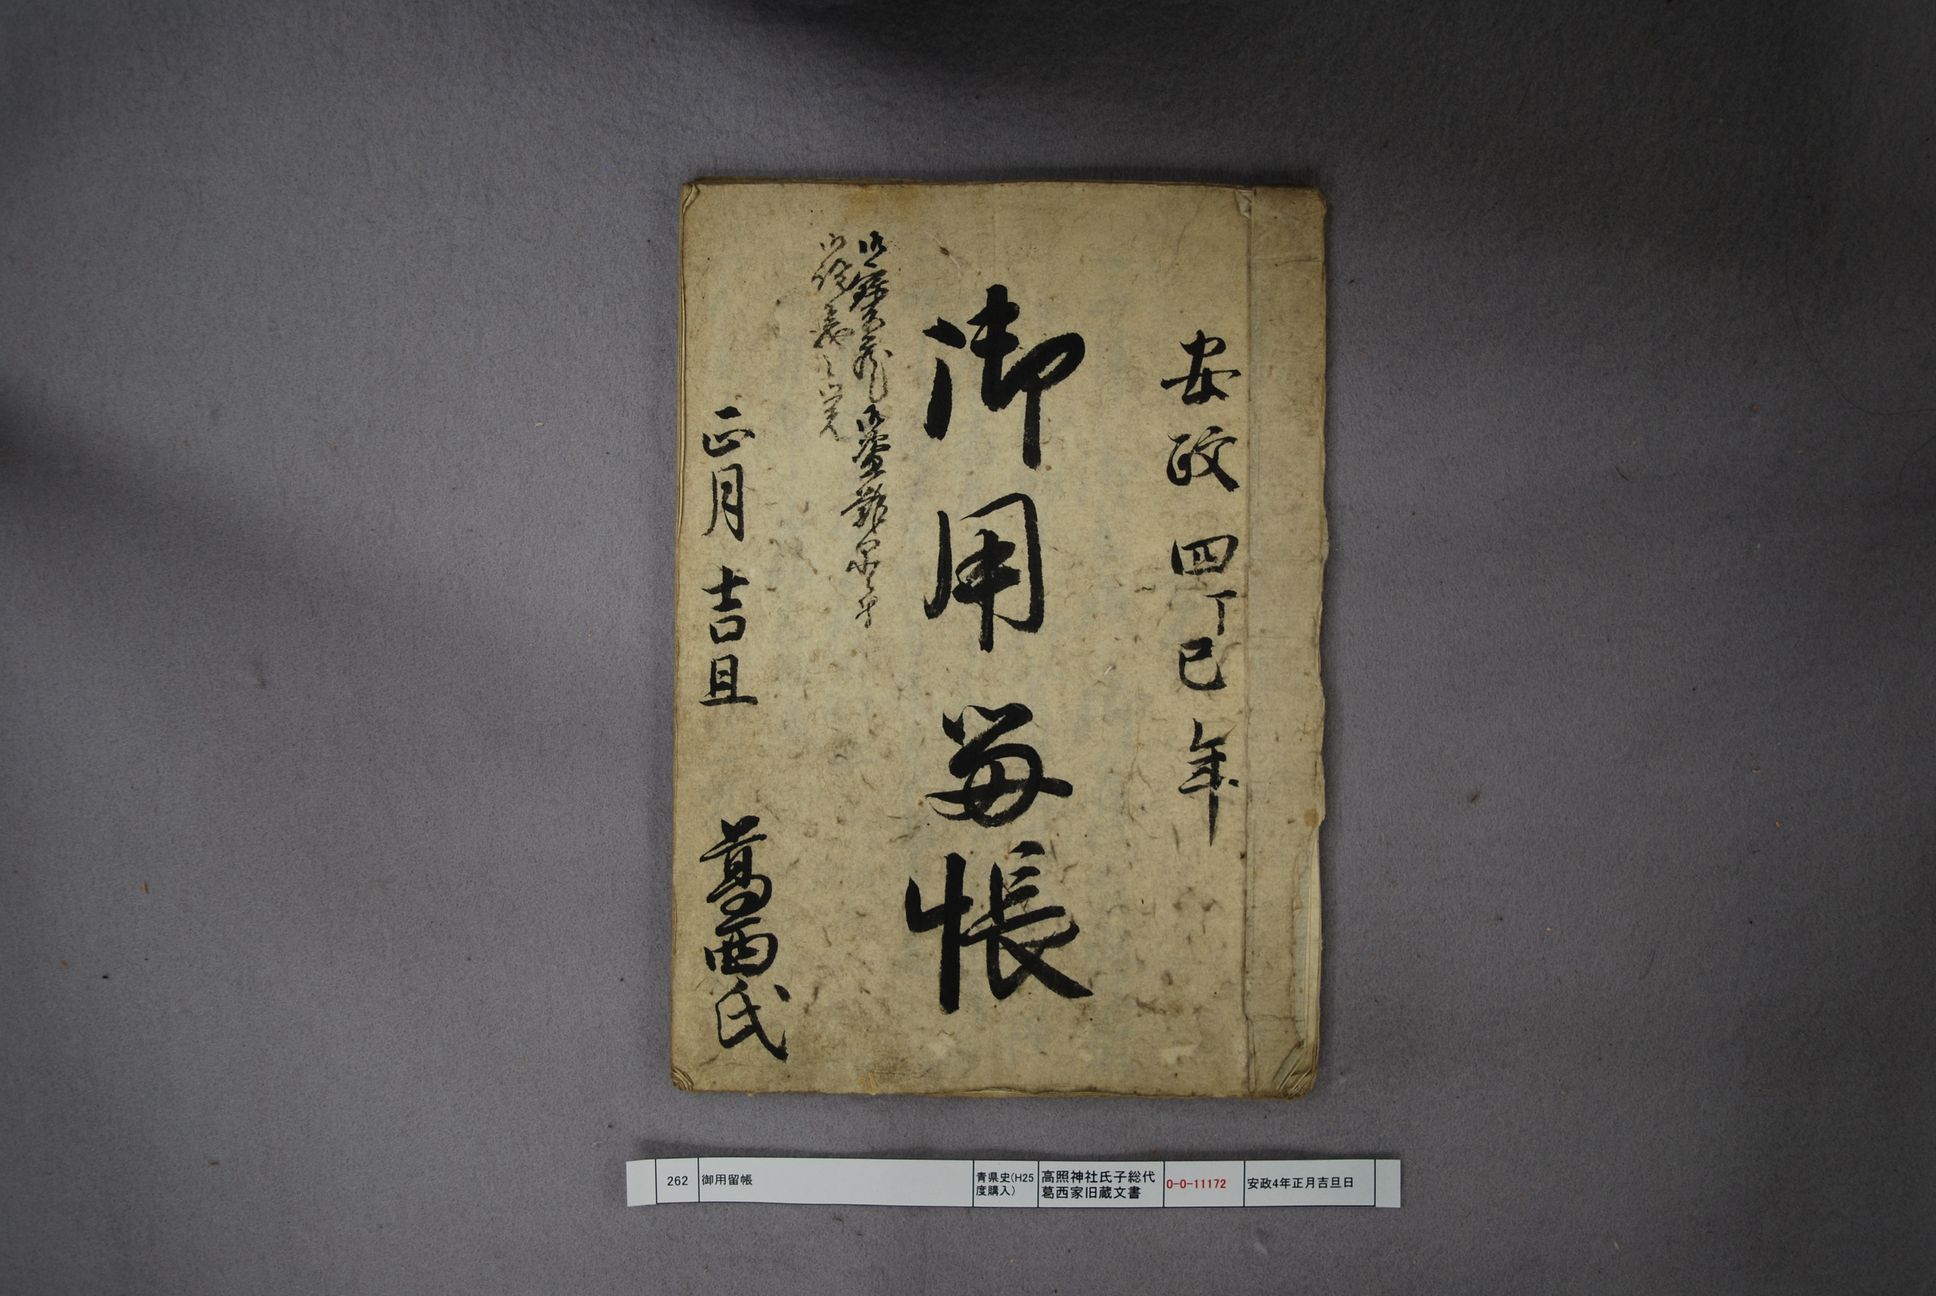 安政四丁巳年
御用留帳
正月吉旦
葛西氏
262
御用留帳
青県史(H25
度購入)
高照神社氏子総代
葛西家旧蔵文書
0-0-11172
安政4年正月吉旦日